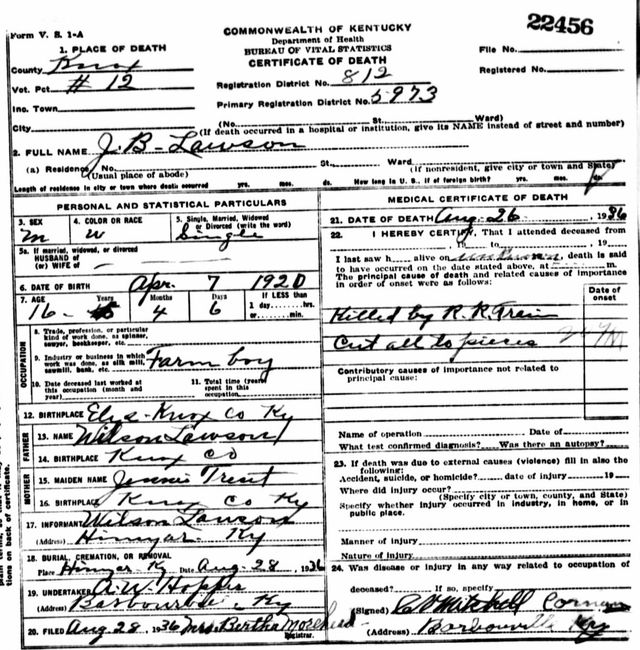 Form V. S. 1-A
COMMONWEALTH OF KENTUCKY
22456
Department of Health
BUREAU OF VITAL STATISTICS
CERTIFICATE OF DEATH
1. PLACE OF DEATH
File No.
County Knox
Registered No.
Vot. Pct # 12
Registration District No. 812
Inc. Town
Primary Registration District No. 5973
City
(No. St. Ward)
(If death occurred in a hospital or institution, give its NAME instead of street and number)
2. FULL NAME J. B - Lawson
(a) Residence, No. St., Ward
(Usual place of abode)
(If nonresident, give city or town and State)
Length of residence in city or town where death occurred yrs. mos. ds. How long in U. S., if of foreign birth? yrs. mos. ds.
PERSONAL AND STATISTICAL PARTICULARS
3. SEX
4. COLOR OR RACE
5. Single, Married, Widowed
or Divorced (write the word)
m
w
Single
5a. If married, widowed, or divorced
HUSBAND of
(or) WIFE of
6. DATE OF BIRTH Apr. 7 1920
7. AGE Years Months Days If LESS than
1 day, hrs.
or min.
16 - 4 6
OCCUPATION
8. Trade, profession, or particular
kind of work done, as spinner,
sawyer, bookkeeper, etc.
9. Industry or business in which
work was done, as silk mill,
sawmill, bank, etc.
Farm boy
10. Date deceased last worked at
this occupation (month and
year)
11. Total time (years)
spent in this
occupation
12. BIRTHPLACE Elys - Knox Co Ky
FATHER
13. NAME Wilson Lawson
14. BIRTHPLACE Knox Co
MOTHER
15. MAIDEN NAME Jennie Trent
16. BIRTHPLACE Knox Co Ky
17. INFORMANT Wilson Lawson
(Address) Himyar. Ky
18. BURIAL, CREMATION, OR REMOVAL
Place Himyar Ky Date Aug - 28, 1936
19. UNDERTAKER A. W. Hopper
(Address) Barbourville, Ky
20. FILED Aug 28, 1936 Mrs. Bertha Morehead
Registrar.
MEDICAL CERTIFICATE OF DEATH
21. DATE OF DEATH Aug. 26, 1936
22. I HEREBY CERTIFY, That I attended deceased
from , 19 to , 19
I last saw h alive on unknown, death is said
to have occurred on the date stated above, at m.
The principal cause of death and related causes of importance
in order of onset were as follows:
Date of
onset
Killed by R. R. Train
Cut all to pieces
Contributory causes of importance not related to
principal cause:
Name of operation Date of
What test confirmed diagnosis? Was there an autopsy?
23. If death was due to external causes (violence) fill in also the
following:
Accident, suicide, or homicide? date of injury 19
Where did injury occur?
(Specify city or town, county, and State)
Specify whether injury occurred in industry, in home, or in
public place.
Manner of injury
Nature of injury
24. Was disease or injury in any way related to occupation of
deceased? If so, specify
(Signed) Mitchell Coroner
(Address) Barbourville Ky
tions on back of certificate.